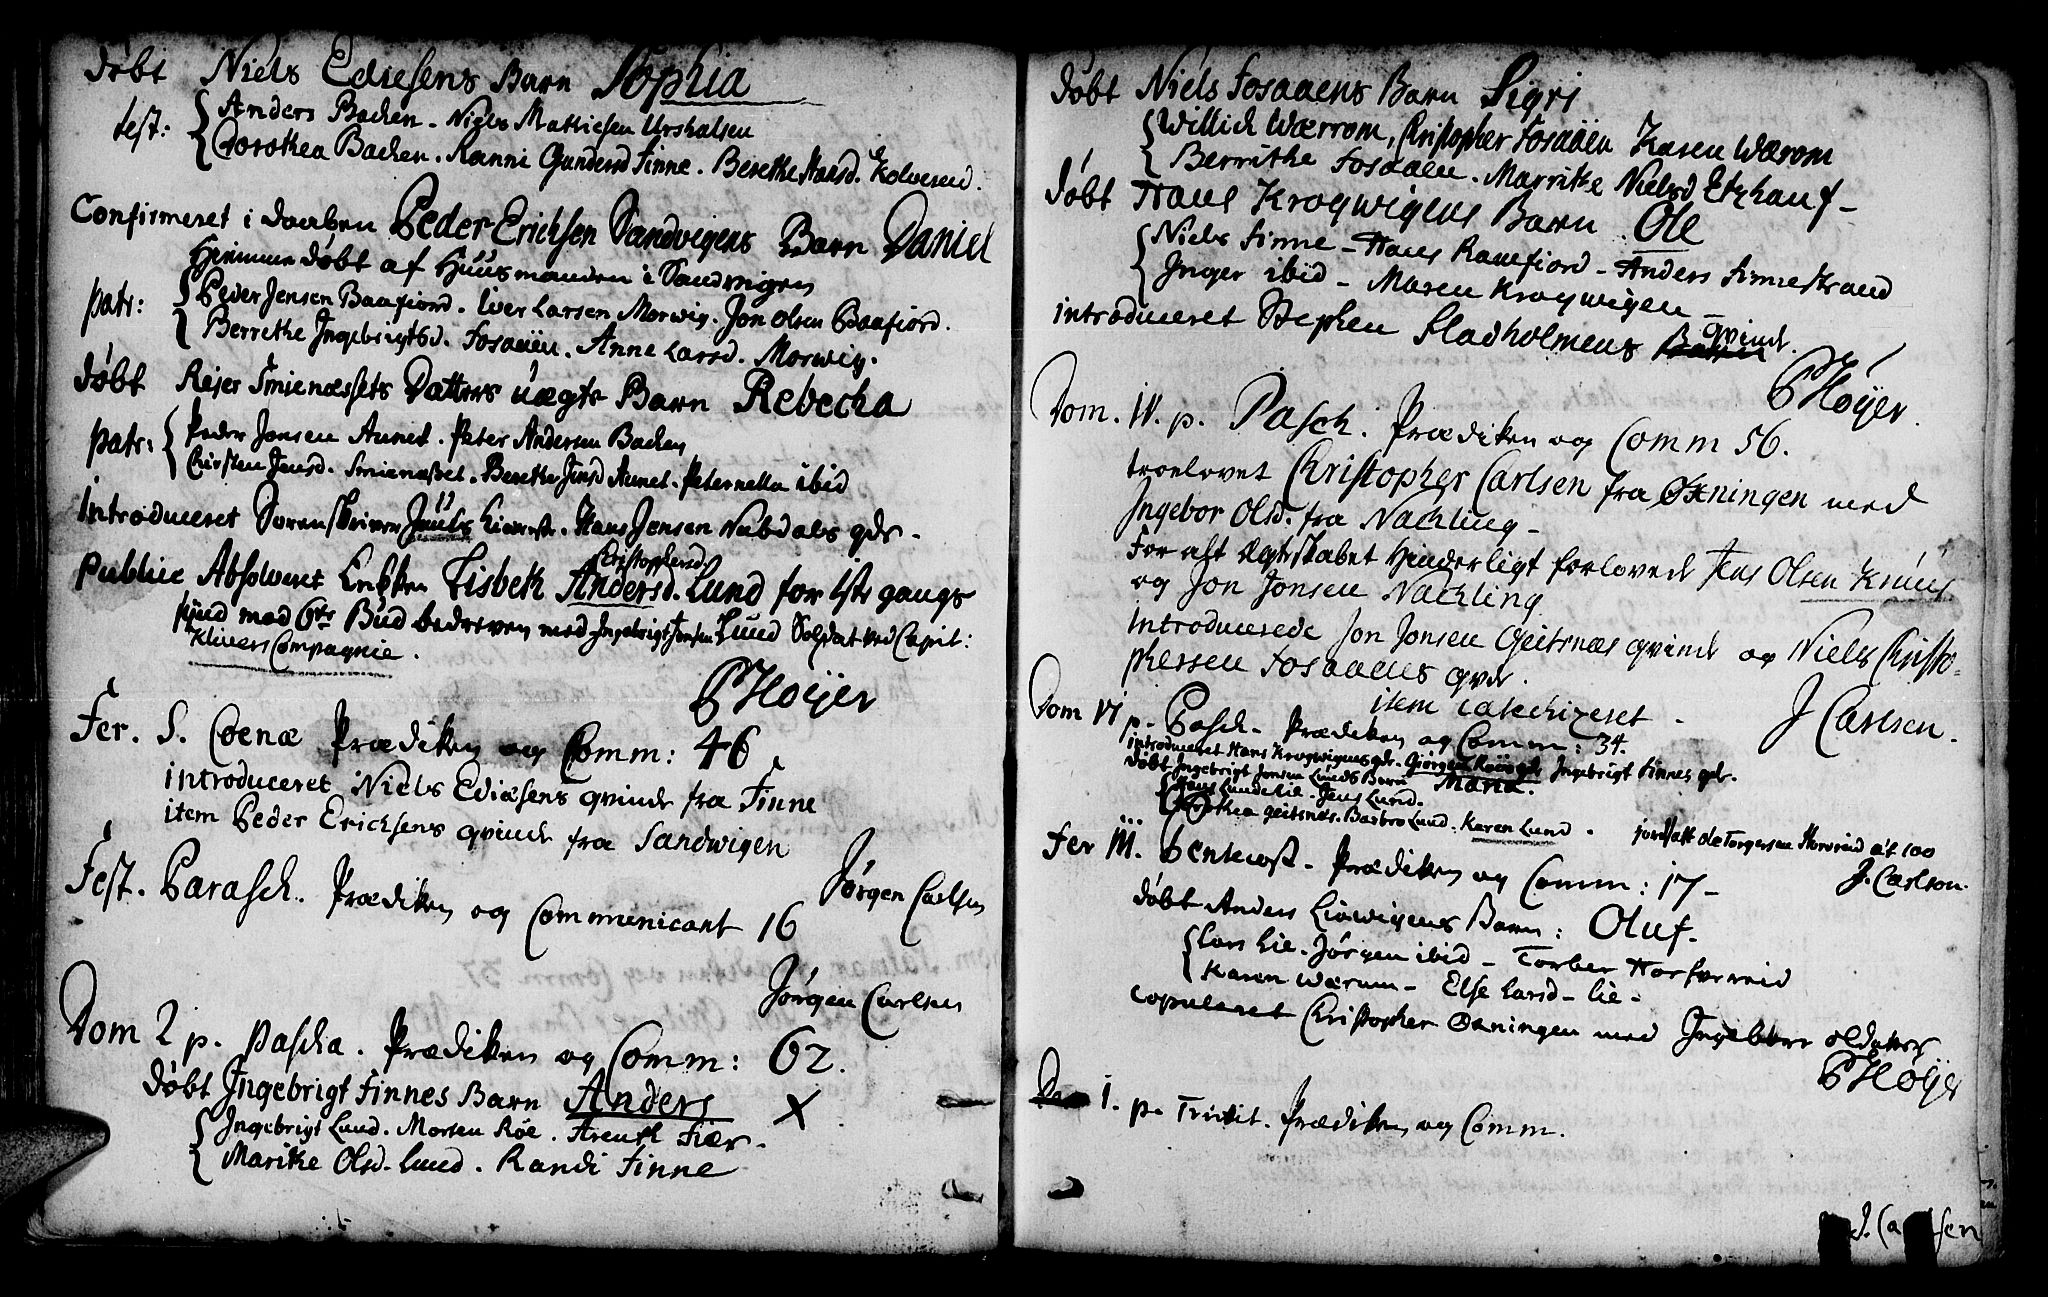 døbt Niels Ediesens Barn Sophia
test: Anders Bachen - Niels Mathiesen Urshalsen
Dorothea Bachen. Ranni Gundersd Finne. Berethe Hansd. Kolvereid.
Confirmeret i daaben Peder Erichsen Sandvigens Barn Daniel
Hiemme døbt af Huusmanden i Sandvigen
patr: Peder Jensen Baafiord. Iver Larsen Morwig. Jon Olsen Baafiord.
Berrethe Ingebrigtsd. Fosaaen. Anne Larsd. Morwig.
døbt Rejer Smienæssets Datters uægte Barn Rebecha
patr: Peder Jonsen Aunet. Peter Andersen Bachen
Kirsten Jensd. Smienæsset. Berethe Jensd Aunet. Peternella ibid
Introduceret Sorenskriver Juuls Kiereste. Hans Jensen Nubdals qde.
Christophersd.
Public Absolveret Enken Lisbeth Andersd. Lund for 1ste gangs
Synd mod 6te Bud bedreven med Ingebrigt Jonsen Lund Soldat ved Capit:
Klüvers Compagnie.
P Höyer
Fer. S. Coenæ Prædiken og Comm: 46
introduceret Niels Ediæsens qvinde fra Finne
item Peder Ericksens qvinde fra Sandwigen
Jørgen Carlsen
Fest. Parasch. Prædiken og Communicant 16
Jørgen Carlsen
Dom 2 p. Pascha. Prædiken og Comm: 62.
døbt Ingebrigt Finnes Barn Anders X
Ingebrigt Lund. Morten Röe. Arenth Fier.
Marithe Olsd. Lund. Randi Finne
døbt Niels Fosaaens Barn Sigri
Willich Wærrom, Christopher Fosaaen Karen Wærom
Berrithe Fosaaen. Marrithe Nielsd Etzhauf -
døbt Hans Krogwigens Barn Ole
Niels Finne - Hans Ranefiord - Anders Finnestrand
Inger ibid - Maren Krogwigen -
introduceret Stephen Sladholmens qvinde.
P Höyer.
Dom. IV. p. Pasch. Prædiken og Comm 56.
troelovet Christopher Carlsen fra Øxningen med
Ingebor Olsd. fra Nachling -
For alt Ægteskabet Hinderligt forlovede Jens Olsen
og Jon Jonsen Nachling
Introducerede Jon Jonsen Geitsnæs qvinde og Niels Christo-
phersen Fosaaens qvde.
item catechizeret - J Carlsen.
Dom VI p. Pasch - Prædiken og Comm: 34.
introduceret Hans Krogwigens qde. Giørgen Roös qde Ingebrigt Finnes qde.
døbt Ingebrigt Jonsen Lunds Barn Maria.
Hans Lundelie. Jens Lund.
Dorothea Geitsnæs. Barbro Lund. Karen Lund.
jordfæstet Ole Torgersen Horvreid æt 100
J. Carlson.
Fer III. Pentecost - Prædiken og Comm: 17 -
døbt Anders Liewigens Barn: Oluf -
Lars Lie. Jørgen ibid - Torber Horfverreid
Karen Wærum - Else Larsd - Lie -
copuleret Christopher Øxningen med Ingebor Olsdatter
P Höyer
Dom 1. p. Trinit. Prædiken og Comm.
J. Carlsen